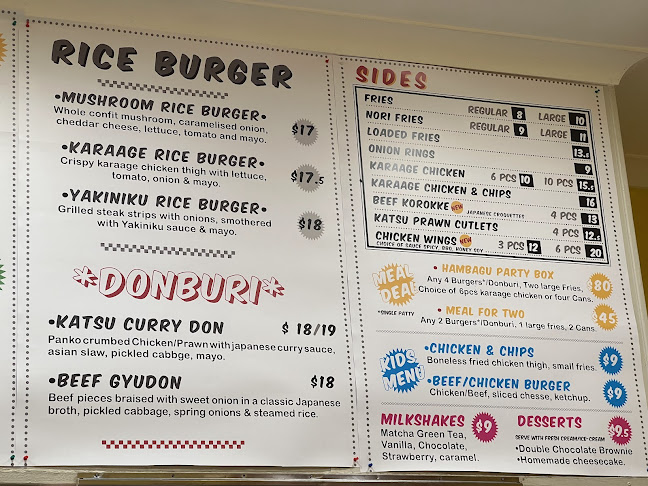 RICE BURGER
•MUSHROOM RICE BURGER•
Whole confit mushroom, caramelised onion,
cheddar cheese, lettuce, tomato and mayo.
$17
•KARAAGE RICE BURGER•
Crispy karaage chicken thigh with lettuce,
tomato, onion & mayo.
$17.5
•YAKINIKU RICE BURGER•
Grilled steak strips with onions, smothered
with Yakiniku sauce & mayo.
$18
*DONBURI*
•KATSU CURRY DON $ 18/19
Panko crumbed Chicken/Prawn with japanese curry sauce,
asian slaw, pickled cabbge, mayo.
•BEEF GYUDON $18
Beef pieces braised with sweet onion in a classic Japanese
broth, pickled cabbage, spring onions & steamed rice.
SIDES
FRIES REGULAR 8 LARGE 10
NORI FRIES REGULAR 9 LARGE 11
LOADED FRIES 13.5
ONION RINGS 9
KARAAGE CHICKEN 6 PCS 10 10 PCS 15.5
KARAAGE CHICKEN & CHIPS 16
BEEF KOROKKE NEW JAPANESE CROQUETTES 4 PCS 13
KATSU PRAWN CUTLETS 4 PCS 12.5
CHICKEN WINGS NEW 3 PCS 12 6 PCS 20
CHOICE OF SAUCE SPICY, BBQ, HONEY SOY
MEAL
DEAL
*SINGLE PATTY
• HAMBAGU PARTY BOX
Any 4 Burgers*/Donburi, Two large fries,
Choice of 6pcs karaage chicken or four Cans.
$80
• MEAL FOR TWO
Any 2 Burgers*/Donburi, 1 large fries, 2 Cans.
$45
KIDS
MENU
•CHICKEN & CHIPS
Boneless fried chicken thigh, small fries.
$9
•BEEF/CHICKEN BURGER
Chicken/Beef, sliced chesse, ketchup.
$9
MILKSHAKES
$9
Matcha Green Tea,
Vanilla, Chocolate,
Strawberry, caramel.
DESSERTS
$9.5
SERVE WITH FRESH CREAM/ICE-CREAM
•Double Chocolate Brownie
•Homemade cheesecake.